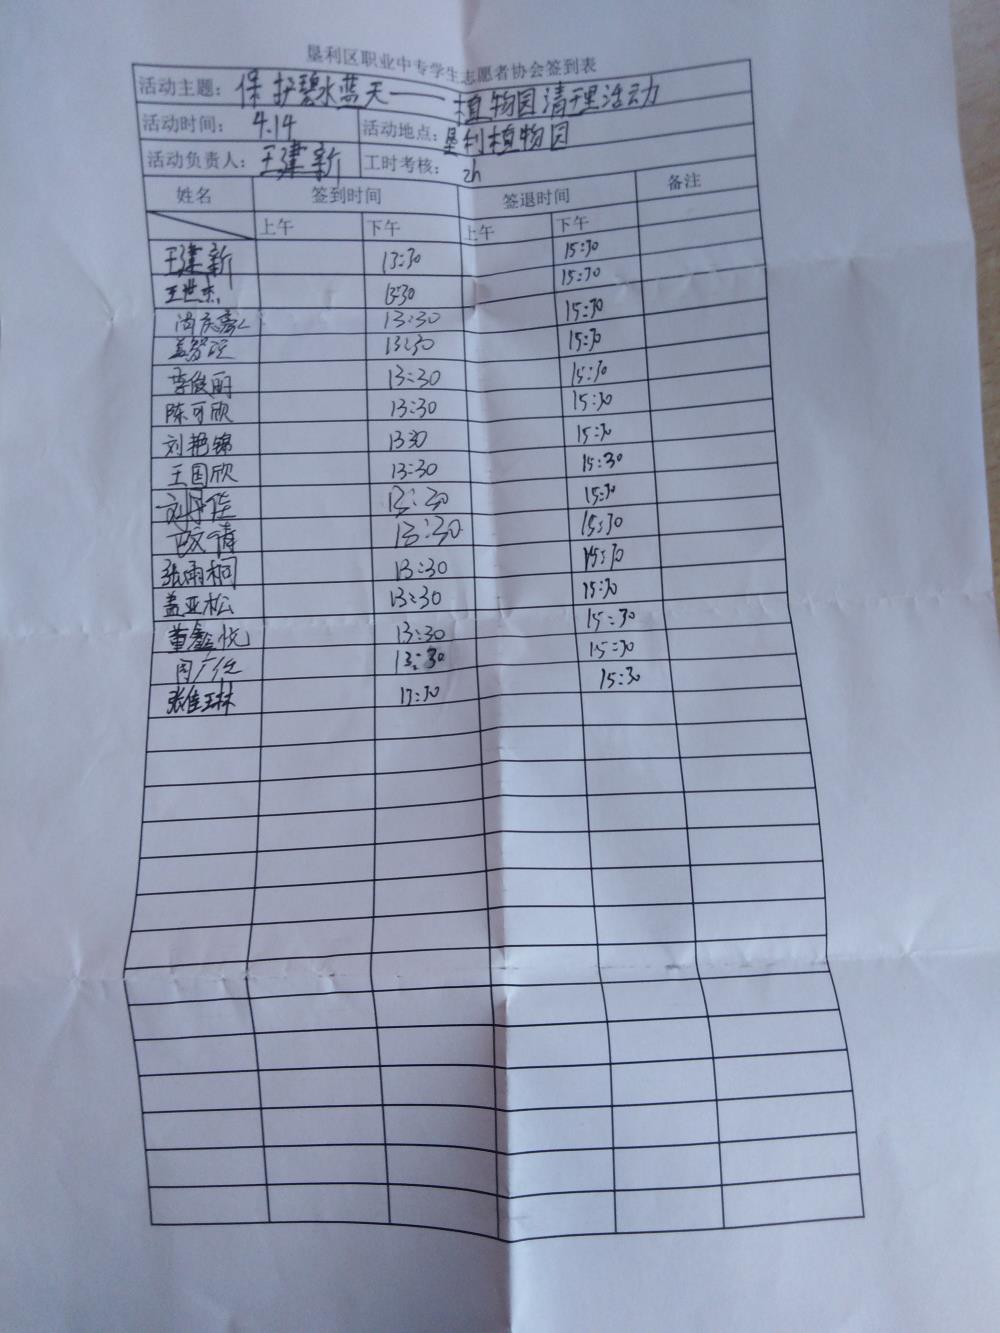 垦利区职业中专学生志愿者协会签到表
活动主题：保护碧水蓝天——植物园清理活动
活动时间：4.14 活动地点：垦利植物园
活动负责人：王建新 工时考核：2h
姓名 签到时间 签退时间 备注
上午 下午 上午 下午
王建新 13:30 15:30
王世杰 13:30 15:30
13:30 15:30
13:30 15:30
李俊丽 13:30 15:30
陈可欣 13:30 15:30
刘艳锦 1330 15:30
王国欣 13:30 15:30
13:30 15:30
13:30 15:30
张雨桐 13:30 15:30
盖亚松 13:30 15:30
董鑫悦 13:30 15:30
13:30 15:30
张佳琳 13:30 15:30